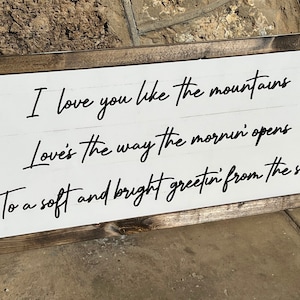 I love you like the mountains
Love's the way the mornin' opens
To a soft and bright greetin' from the